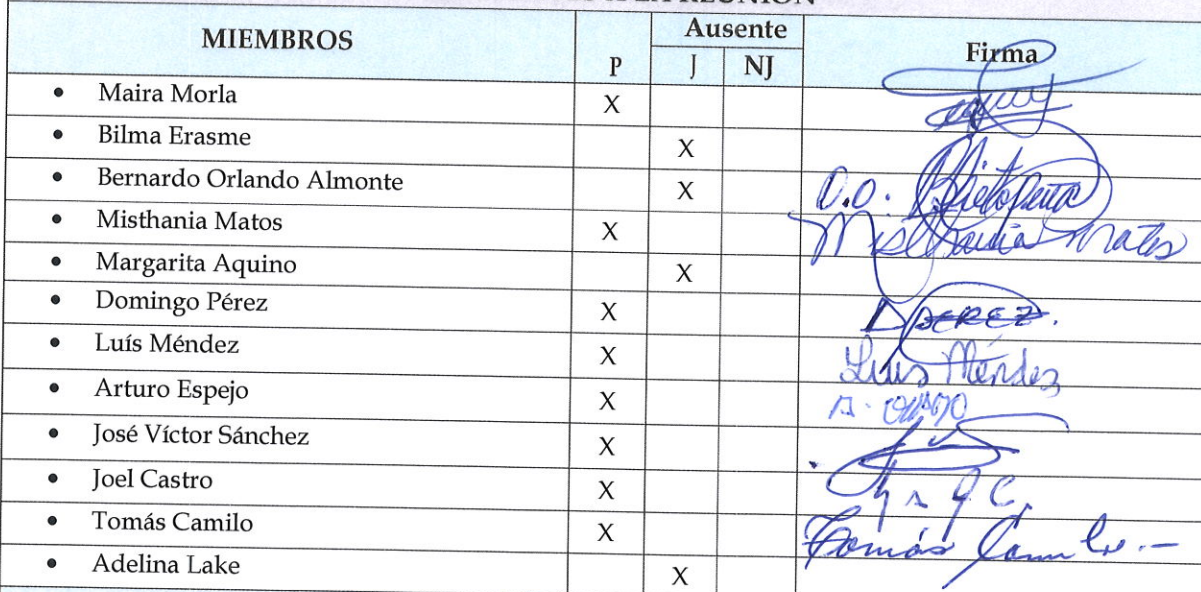 LA REUNIÓN
MIEMBROS P Ausente Firma
J NJ
• Maira Morla X
• Bilma Erasme X
• Bernardo Orlando Almonte X
• Misthania Matos X Misthania Matos
• Margarita Aquino X
• Domingo Pérez X DPEREZ.
• Luís Méndez X Luis Méndez
• Arturo Espejo X
• José Víctor Sánchez X
• Joel Castro X
• Tomás Camilo X Tomás Camilo.-
• Adelina Lake X